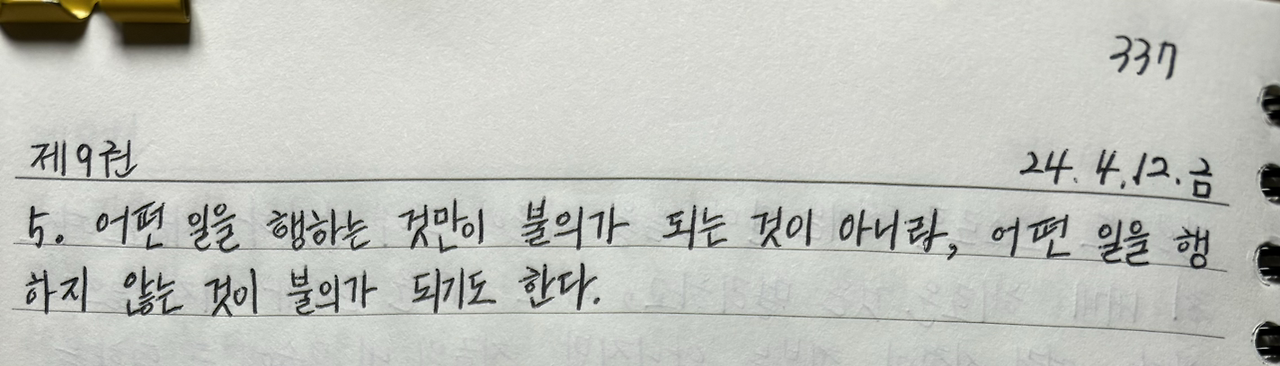 337
제9권 24. 4. 12. 금
5. 어떤 일을 행하는 것만이 불의가 되는 것이 아니라, 어떤 일을 행
하지 않는 것이 불의가 되기도 한다.